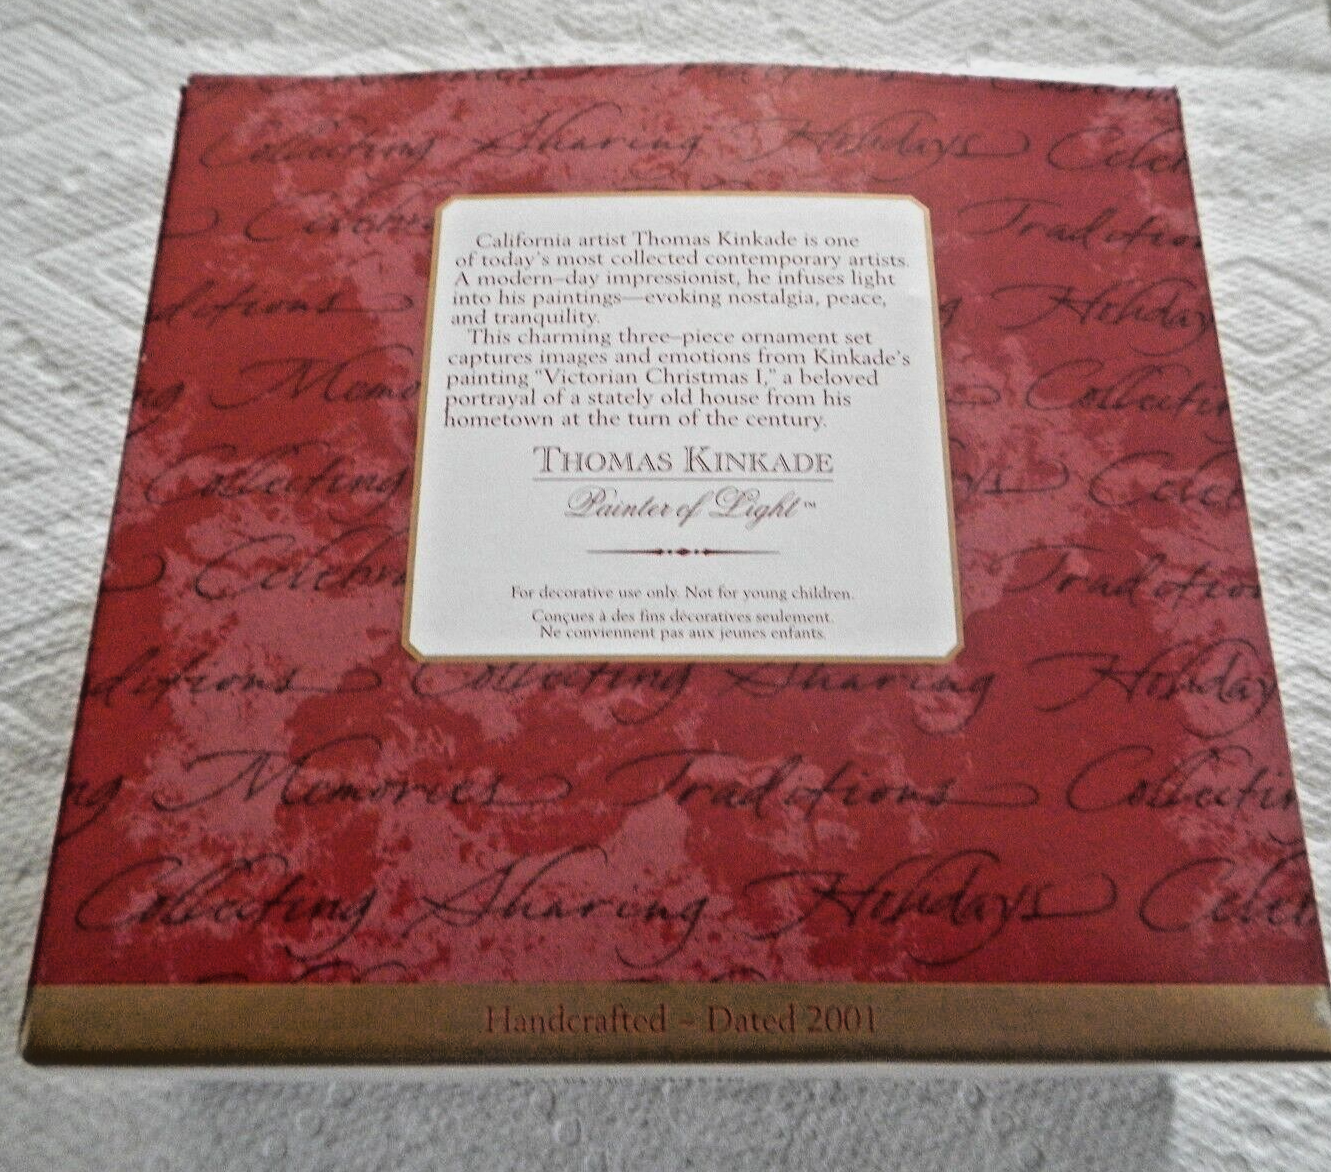 Collecting Sharing Holidays
Traditions
Holiday
Collecting
Collecting
Traditions
Collecting Sharing Holiday
Memories Traditions
Collecting Sharing Holidays
California artist Thomas Kinkade is one
of today's most collected contemporary artists.
A modern–day impressionist, he infuses light
into his paintings—evoking nostalgia, peace,
and tranquility.
This charming three–piece ornament set
captures images and emotions from Kinkade's
painting "Victorian Christmas I," a beloved
portrayal of a stately old house from his
hometown at the turn of the century.
THOMAS KINKADE
Painter of Light™
For decorative use only. Not for young children.
Conçues à des fins décoratives seulement.
Ne conviennent pas aux jeunes enfants.
Handcrafted – Dated 2001